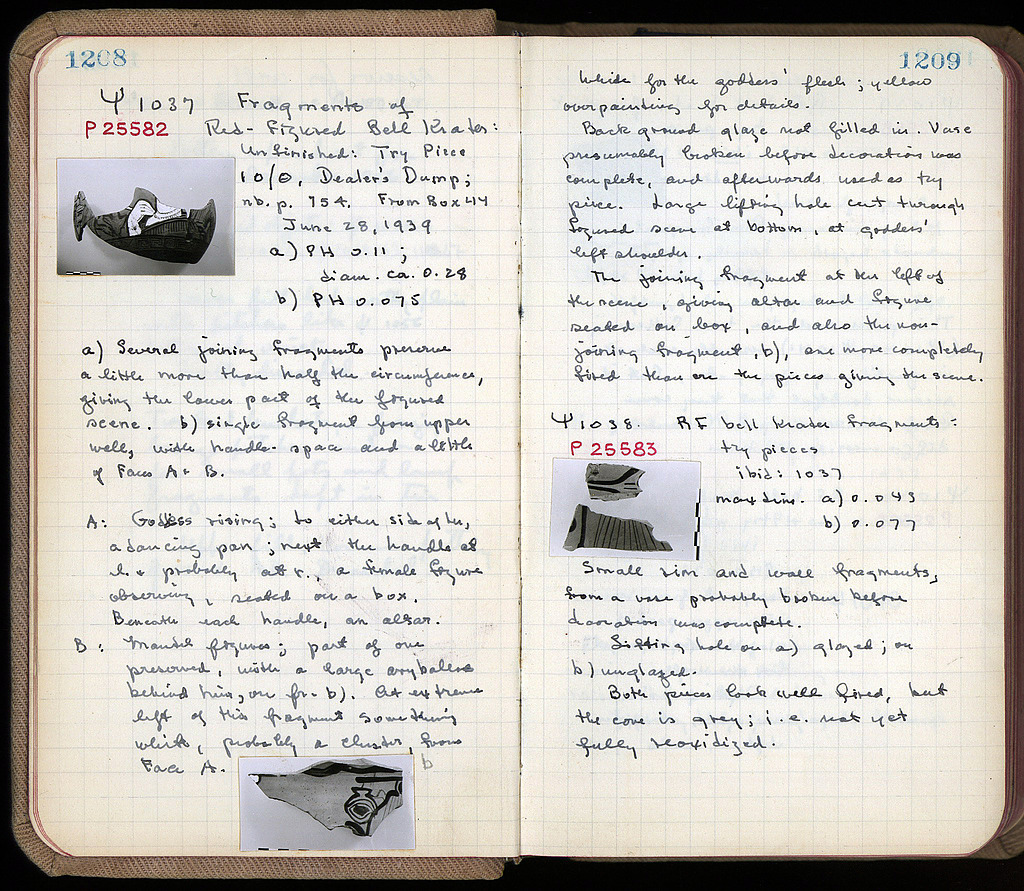 1208
Ψ 1037 Fragments of
P 25582 Red-Figured Bell Krater:
Unfinished: Try Piece
10/0, Dealer's Dump;
nb. p. 754. From Box 44
June 28, 1939
a) PH 0.11;
diam. ca. 0.28
b) PH 0.075
a) Several joining fragments preserve
a little more than half the circumference,
giving the lower part of the figured
scene. b) single fragment from upper
wall, with handle-space and a little
of Faces A + B.
A: Goddess rising; to either side of her,
a dancing pan; next the handle at
l. + probably at r., a female figure
observing, seated on a box.
Beneath each handle, an altar.
B: Mantel figures; part of one
preserved, with a large aryballos
behind him, on fr. b). At extreme
left of this fragment something
white, probably a cluster, from
Face A.
b
1209
White for the goddess' flesh; yellow
overpainting for details.
Background glaze not filled in. Vase
presumably broken before decoration was
complete, and afterwards used as try
piece. Large lifting hole cut through
figured scene at bottom, at goddess'
left shoulder.
The joining fragment at the left of
the scene, giving altar and figure
seated on box, and also the non-
joining fragment, b), are more completely
fired than are the pieces giving the scene.
Ψ 1038. RF bell krater fragments:
P 25583 try pieces
ibid: 1037
max dim. a) 0.043
b) 0.077
Small rim and wall fragments,
from a vase probably broken before
decoration was complete.
Lifting hole on a) glazed; on
b) unglazed.
Both pieces look well fired, but
the core is grey; i.e. not yet
fully reoxidized.